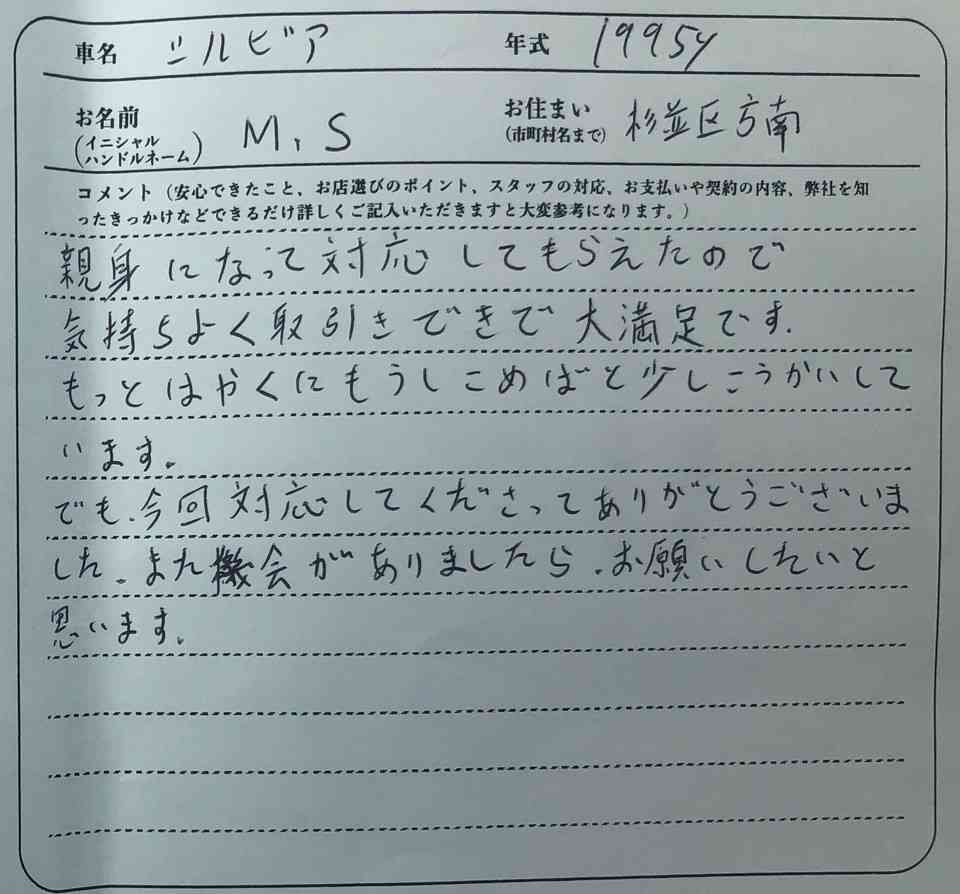 車名 シルビア 年式 1995y
お名前 (イニシャル ハンドルネーム) M,S お住まい (市町村名まで) 杉並区方南
コメント（安心できたこと、お店選びのポイント、スタッフの対応、お支払いや契約の内容、弊社を知
ったきっかけなどできるだけ詳しくご記入いただきますと大変参考になります。）
親身になって対応してもらえたので
気持ちよく取引きできで大満足です.
もっとはやくにもうしこめばと少しこうかいして
います。
でも、今回対応してくださってありがとうございま
した。また機会がありましたら、お願いしたいと
思います。